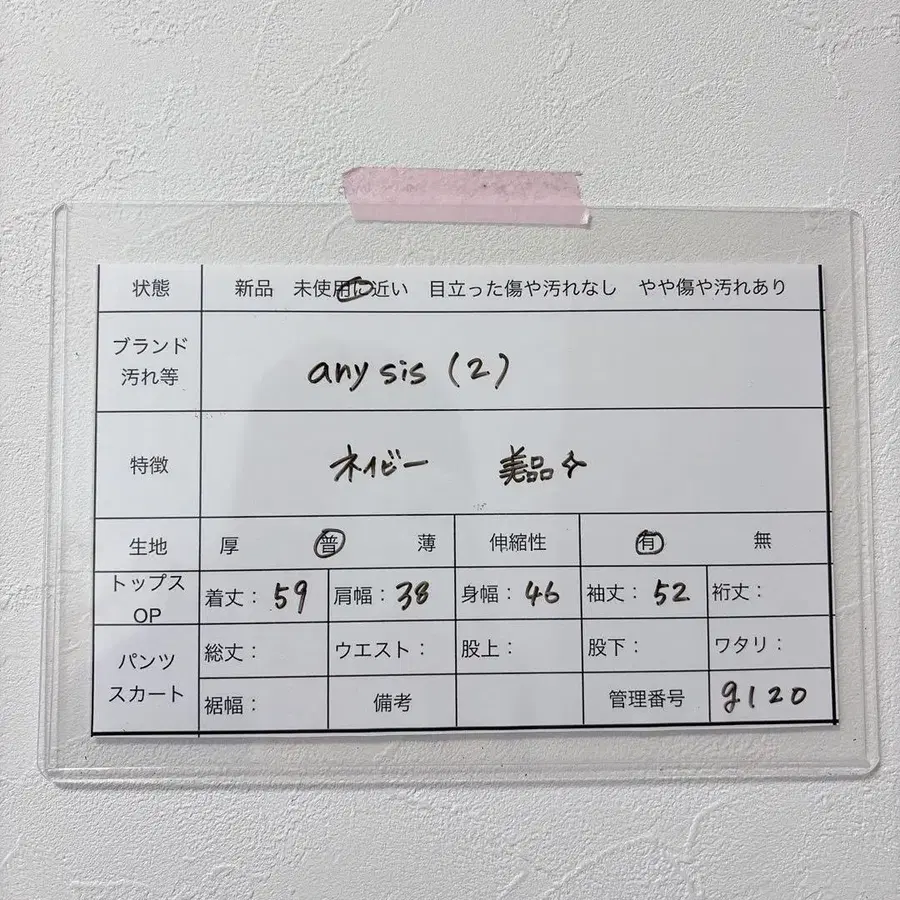 状態 新品 未使用に近い 目立った傷や汚れなし やや傷や汚れあり
ブランド
汚れ等
any sis (2)
特徴 ネイビー 美品✧
生地 厚 普 薄 伸縮性 有 無
トップス
OP
着丈：59 肩幅：38 身幅：46 袖丈：52 裄丈：
パンツ
スカート
総丈： ウエスト： 股上： 股下： ワタリ：
裾幅： 備考 管理番号 g120